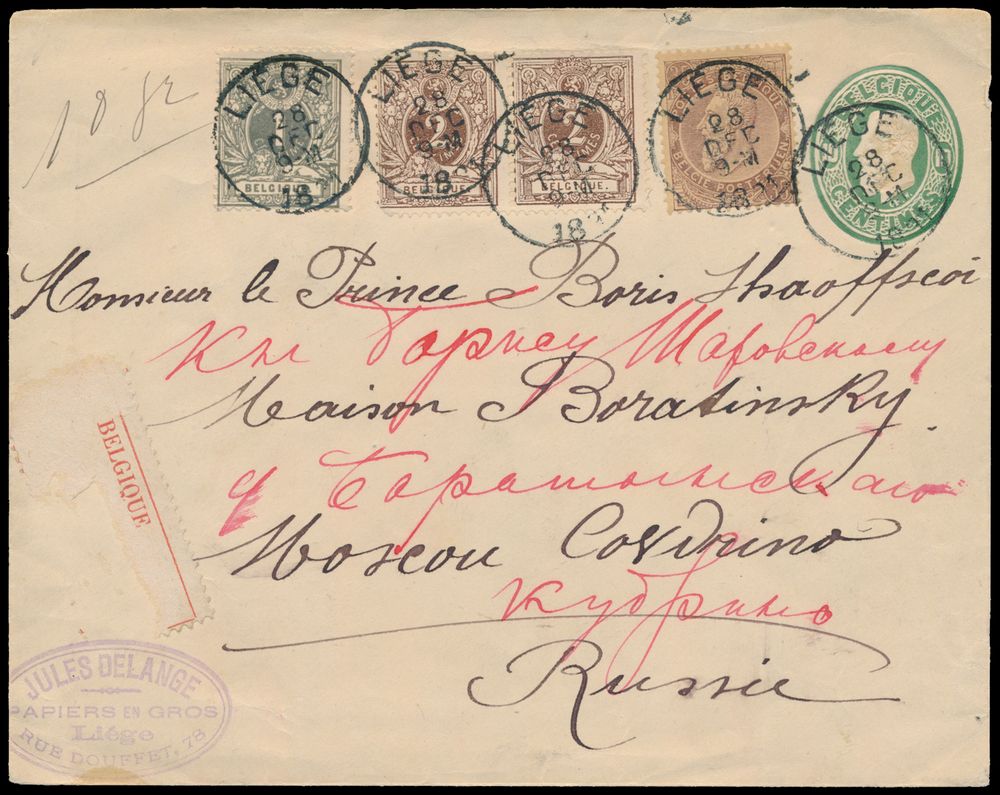 LIÉGE 28 DEC 9-M 18
LIÉGE 28 DEC 9-M 18
LIÉGE 28 DEC 9-M 18
LIÉGE 28 DEC 9-M 18
LIÉGE 28 DEC 9-M 18
BELGIQUE
2 BELGIQUE.
2 BELGIQUE.
BELGIE
BELGIQUE CENTIMES
Monsieur le Prince Boris Shaoffscoi
Кн Борису Шаховскому
Maison Boratinsky
д Баратынскаго
BELGIQUE
Moscou Coudrino
Кудрино
Russie
JULES DELANGE
PAPIERS EN GROS
Liége
RUE DOUFFET, 78